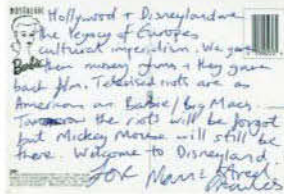 NOSTALGIC
Barbie
Hollywood + Disneyland are
the legacy of Europes
cultural imperialism. We gave
them money guns + they gave
back film. Televised riots are as
American as Barbie/Big Macs.
Tomorrow the riots will be forgot
but Mickey Mouse will still be
there. Welcome to Disneyland.
FOR Manic Street